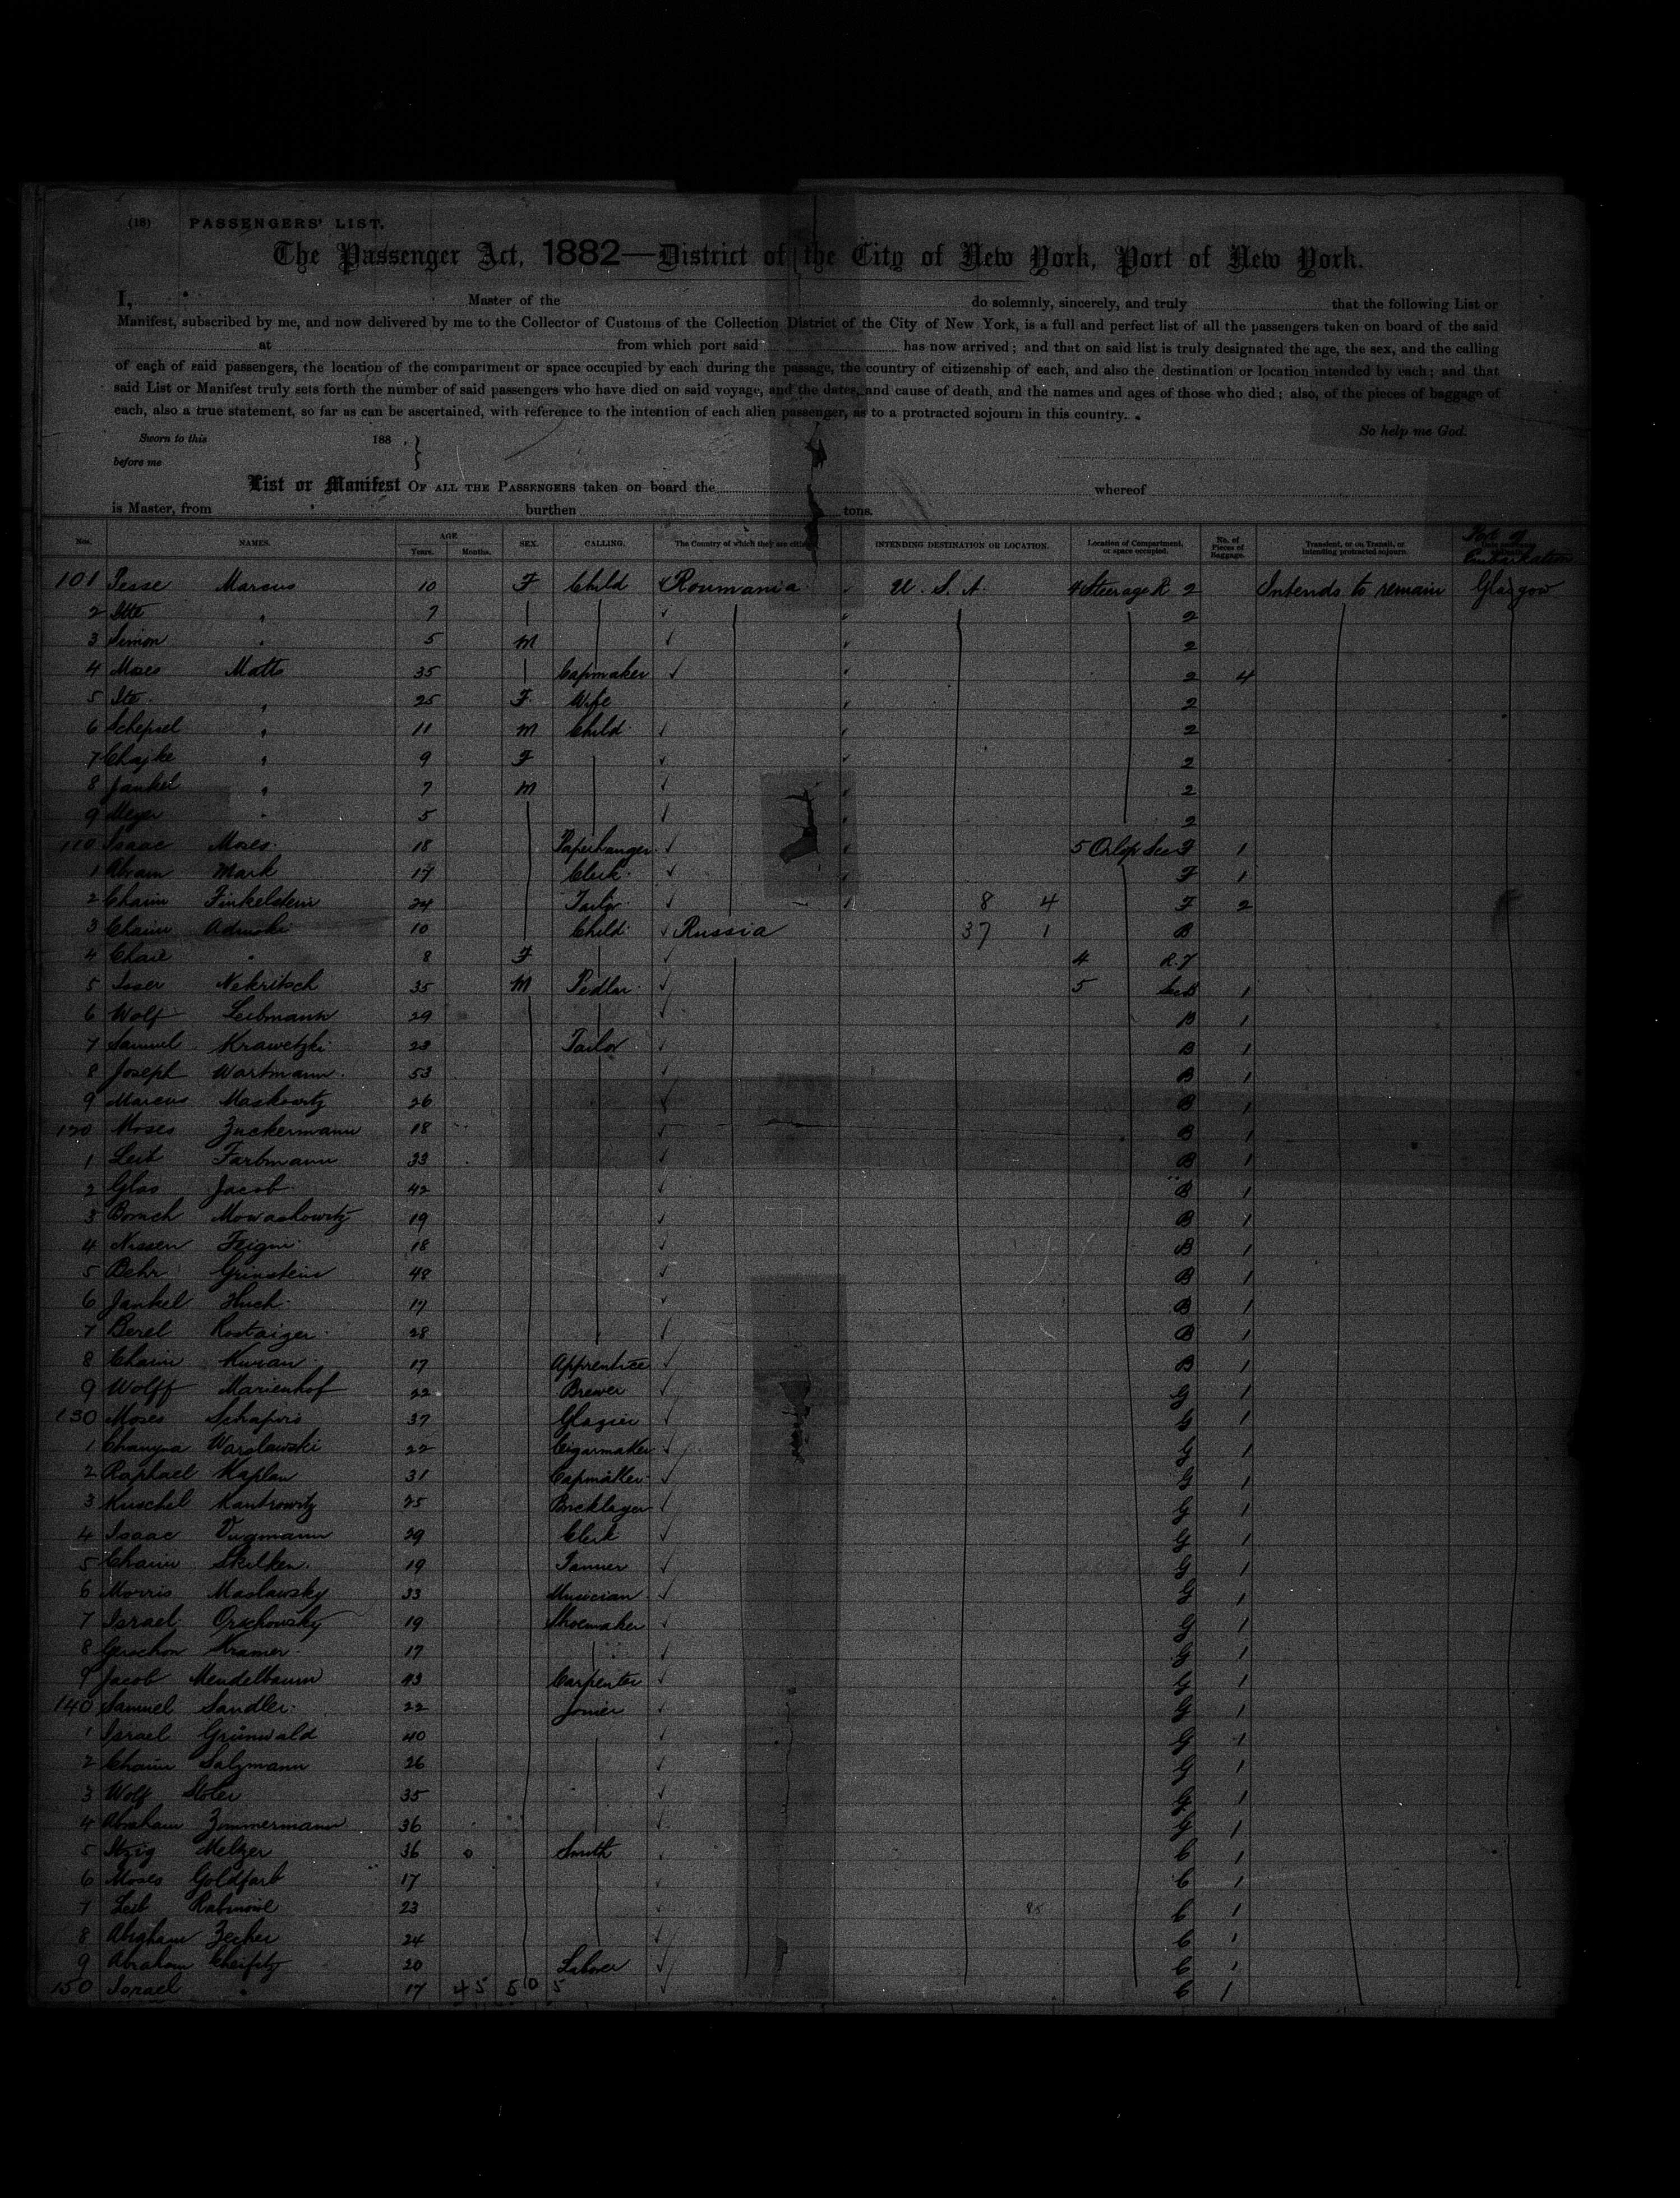 (18) PASSENGERS' LIST.
The Passenger Act, 1882—District of the City of New York, Port of New York.
I, Master of the do solemnly, sincerely, and truly that the following List or
Manifest, subscribed by me, and now delivered by me to the Collector of Customs of the Collection District of the City of New York, is a full and perfect list of all the passengers taken on board of the said
at from which port said has now arrived; and that on said list is truly designated the age, the sex, and the calling
of each of said passengers, the location of the compartment or space occupied by each during the passage, the country of citizenship of each, and also the destination or location intended by each; and that
said List or Manifest truly sets forth the number of said passengers who have died on said voyage, and the dates, and cause of death, and the names and ages of those who died; also, of the pieces of baggage of
each, also a true statement, so far as can be ascertained, with reference to the intention of each alien passenger, as to a protracted sojourn in this country.
So help me God.
Sworn to this 188
before me
List or Manifest OF ALL THE PASSENGERS taken on board the whereof
is Master, from burthen tons.
Nos. NAMES. AGE Years. Months. SEX. CALLING. The Country of which they are citizens INTENDING DESTINATION OR LOCATION. Location of Compartment, or space occupied. No. of Pieces of Baggage. Transient, or on Transit, or Intending protracted sojourn. Port of Embarkation
101 Pesse Marcus 10 F Child Roumania U.S.A. 4 Steerage R 2 Intends to remain Glasgow
2 Itte " 7 2
3 Simon " 5 M 2
4 Moses Matts 35 Capmaker 2 4
5 Ite " 25 F Wife 2
6 Schepsel " 11 M Child 2
7 Chajke " 9 F 2
8 Jankel " 7 M 2
9 Meyer " 5 2
110 Isaac Moses 18 Paperhanger 5 Orlop Sec F 1
1 Abram Mark 17 Clerk F 1
2 Chaim Finkelstein 24 Tailor 8 4 F 2
3 Chaim Adinski 10 Child Russia 37 1 B
4 Chaie " 8 F 4 R. 7
5 Isser Nekritsch 35 M Pedlar 5 Sec B 1
6 Wolf Leibmann 29 B 1
7 Samuel Krawetzki 23 Tailor B 1
8 Joseph Wortmann 53 B 1
9 Marcus Maskowitz 26 B 1
120 Moses Zuckermann 18 B 1
1 Leib Farbmann 33 B 1
2 Glas Jacob 42 B 1
3 Boruch Mowashowitz 19 B 1
4 Nissen Feigin 18 B 1
5 Behr Grinstein 48 B 1
6 Jankel Huch 17 B 1
7 Berel Rostaizer 28 B 1
8 Chaim Kuran 17 Apprentice B 1
9 Wolff Marienhof 22 Brewer G 1
130 Moses Schapiro 37 Glazier G 1
1 Chanyna Warslawski 22 Cigarmaker G 1
2 Raphael Kaplan 31 Capmaker G 1
3 Kuschel Kantrowitz 25 Bricklayer G 1
4 Isaac Vugmann 29 Clerk G 1
5 Chaim Skilken 19 Tanner G 1
6 Morris Maslawsky 33 Musician G 1
7 Israel Orschowsky 19 Shoemaker G 1
8 Gerschon Kramer 17 G 1
9 Jacob Mendelbaum 43 Carpenter G 1
140 Samuel Sandler 22 Joiner G 1
1 Israel Grünwald 40 G 1
2 Chaim Salzmann 26 G 1
3 Wolf Stoler 35 G 1
4 Abraham Zimmermann 36 G 1
5 Itzig Melzer 36 0 Smith C 1
6 Moses Goldfarb 17 C 1
7 Leib 23 C 1
8 Abraham Zecher 24 C 1
9 Abraham Cheifitz 20 Laborer C 1
150 Israel " 17 45 50 5 C 1